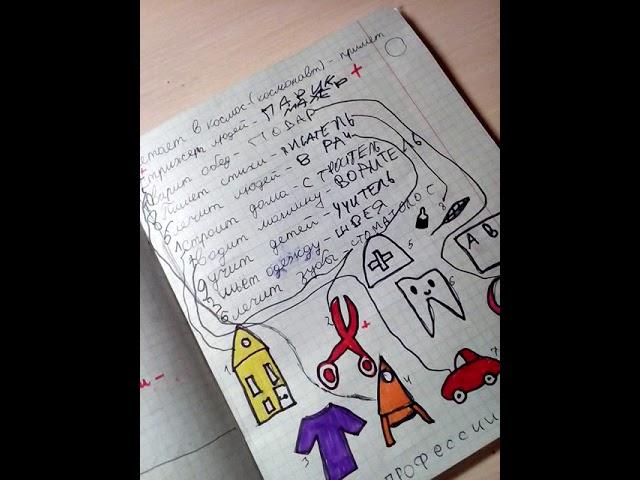 летает в космос-(космонавт)-пример
стрижет людей - ПАРИКМАХЕР
варит обед - ПОВАР
8 Пишет стихи - ПИСАТЕЛЬ
5 лечит людей - ВРАЧ
1 строит дома - СТРОИТЕЛЬ
7 водит машину - ВОДИТЕЛЬ
9 учит детей - УЧИТЕЛЬ
3 шьёт одежду - ШВЕЯ
6 лечит зубы - СТОМАТОЛОГ
5
8
А В
6
1
2
4
7
3
ПРОФЕССИИ